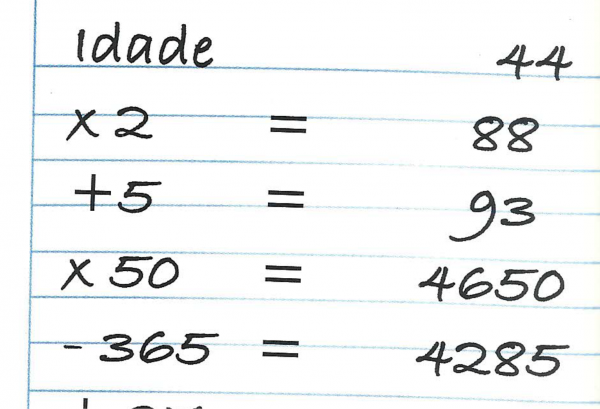 Idade 44
x 2 = 88
+5 = 93
x 50 = 4650
- 365 = 4285